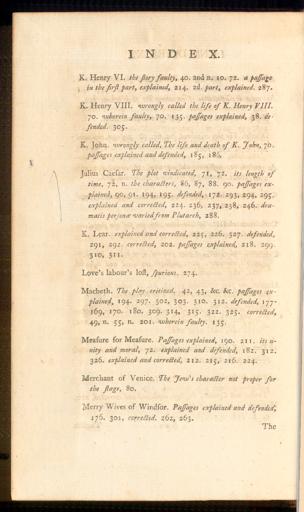 INDEX.
K. Henry VI. the story faulty, 40. and n. 10. 72. a passage
in the first part, explained, 214. 2d. part, explained. 287.
K. Henry VIII. wrongly called the life of K. Henry VIII.
70. wherein faulty, 70. 135. passages explained, 38. de-
fended. 305.
K. John. wrongly called, The life and death of K. John, 70.
passages explained and defended, 185, 186.
Julius Caesar. The plot vindicated, 71, 72. its length of
time, 72, n. the characters, 86, 87, 88. 90. passages ex-
plained, 90, 91. 194. 195. defended, 178. 293. 294. 295.
explained and corrected, 224. 236, 237, 238, 246. dra-
matis personæ varied from Plutarch, 288.
K. Lear. explained and corrected, 225, 226. 327. defended,
291, 292. corrected, 202. passages explained, 218. 299.
310, 311.
Love's labour's lost, spurious. 274.
Macbeth. The play criticised, 42, 43, &c. &c. passages ex-
plained, 194. 297. 302, 303. 310. 312. defended, 177-
169, 170. 180. 309. 314, 315. 322. 325. corrected,
49, n. 55, n. 201. wherein faulty. 135.
Measure for Measure. Passages explained, 190. 211. its u-
nity and moral, 72. explained and defended, 182. 312.
326. explained and corrected, 212. 215, 216. 224.
Merchant of Venice. The Jew's character not proper for
the stage, 80.
Merry Wives of Windsor. Passages explained and defended,
176. 301, corrected. 262, 263.
The